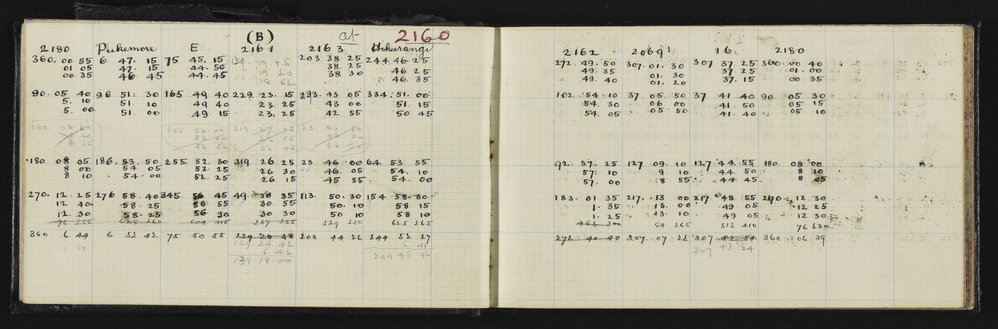 (B) at 2160
2180 Pukemore E 2161 2163 Hikurangi
360.00 55 6 47.15 75 45.15 203.38 25 244.46 25
01 05 47.15 44.50 38.25 46 25
00 35 46 45 44.45 38 30 46 35
90.05 40 96 51:30 165 49 40 229.23.15 293.43 05 334.51.00
5.10 51.10 49 40 23.25 43 00 51.15
5.00 51.00 49 15 23.25 42 55 50 45
180 08 05 186.53.50 255 52.30 319 26 25 23 46.00 64 53 55
8 00 54 05 52.25 26 30 46.05 54.10
8 10 54.00 52.25 26 15 45 55 54.00
270.12 25 276 58 40 345 56 45 49 30 35 113 50.30 154 58 30
12 40 58 25 56 55 30 55 50.10 58 15
12 30 58.25 56 30 30 50 10 58 10
360 6 44 6 52 42 75 50 55 229 28 48 203 44 26 244 52 27
129 24 42
6 42
139 18 00 244 45 45
2162 2069' 16 2180
272.49.50 307.01.30 307 37 25 360 00 40
49.35 01.30 37 25 01 00
49.40 01.20 37.15 00 35
102.54 10 37 05 50 37 41 40 90 05 30
54.30 06 00 41.50 05 15
54.05 05 50 41.40 05 10
92 57.25 127 09.10 127 44.55 180 08 00
57.10 9 10 44 50 8 10
57.00 8 55 44 45 8 05
183.01 35 217.13 00 217 48 55 270 12 30
1.35 13.00 49 05 12 25
1.25 13.10 49 05 12 30
76 230
272 40 40 307 07 22 307 42 54 360 06 29
307 43.24